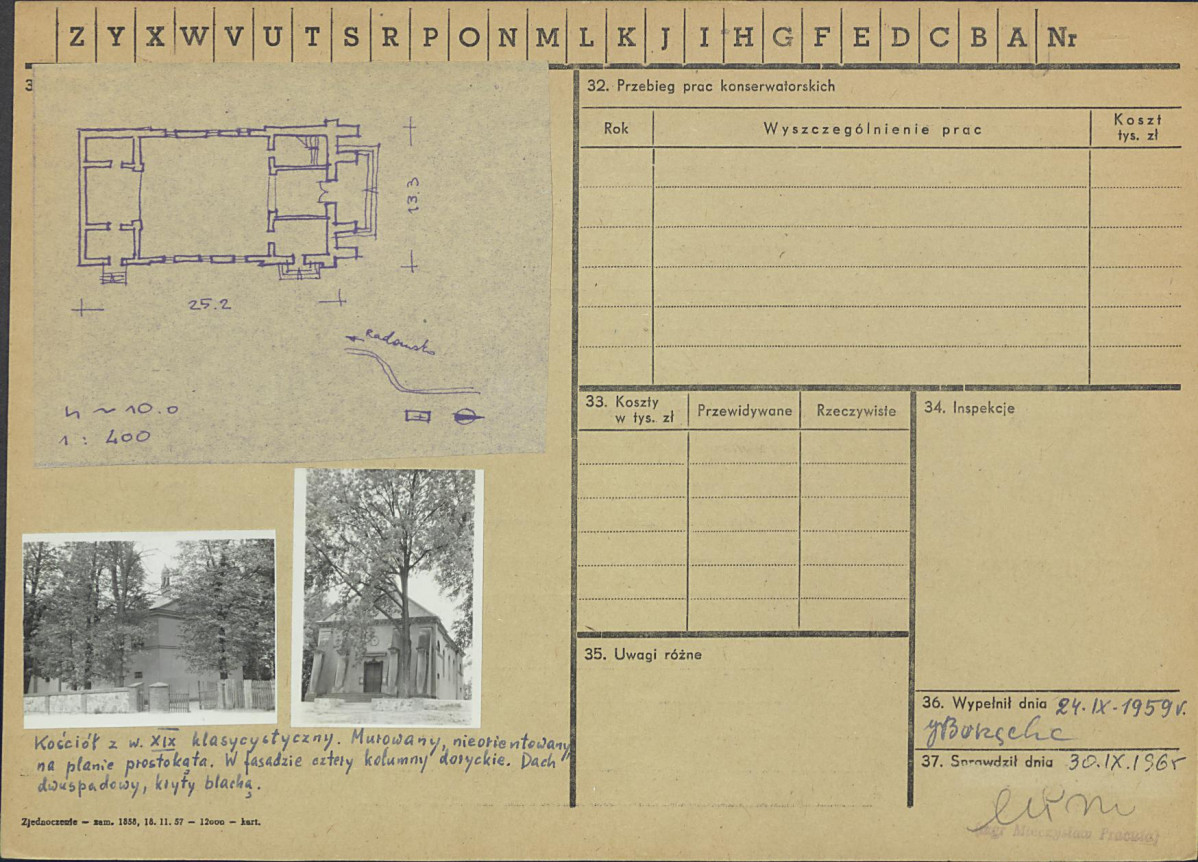 Z Y X W V U T S R P O N M L K J I H G F E D C B A Nr
3
13.3
25.2
Radomsko
h ~ 10.0
1 : 400
Kościół z w. XIX klasycystyczny. Murowany, nieorientowany,
na planie prostokąta. W fasadzie cztery kolumny doryckie. Dach
dwuspadowy, kryty blachą.
Zjednoczenie — zam. 1858, 18. 11. 57 — 12000 — kart.
32. Przebieg prac konserwatorskich
Rok Wyszczególnienie prac Koszt
tys. zł
33. Koszty
w tys. zł Przewidywane Rzeczywiste
34. Inspekcje
35. Uwagi różne
36. Wypełnił dnia 24.IX.1959r.
37. Sprawdził dnia 30.IX.1965
mgr Mieczysław